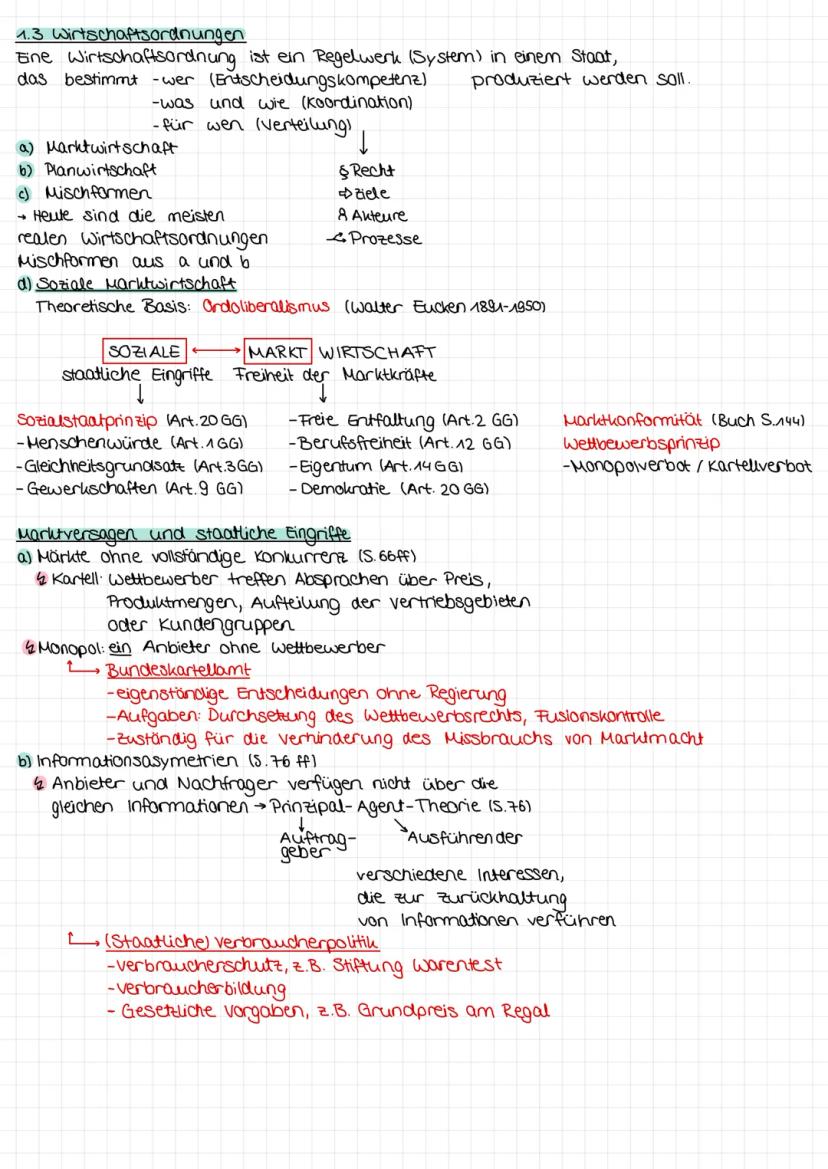 1.3 Wirtschaftsordnungen
Eine Wirtschaftsordnung ist ein Regelwerk (System) in einem Staat,
das bestimmt -wer (Entscheidungskompetenz) produziert werden soll.
-was und wie (Koordination)
-für wen (Verteilung)
↓
a) Marktwirtschaft
b) Planwirtschaft § Recht
c) Mischformen ⇨ Ziele
→ Heute sind die meisten Akteure
realen Wirtschaftsordnungen Prozesse
Mischformen aus a und b
d) Soziale Marktwirtschaft
Theoretische Basis: Ordoliberalismus (Walter Eucken 1891-1950)
SOZIALE ←→ MARKT WIRTSCHAFT
staatliche Eingriffe Freiheit der Marktkräfte
↓ ↓
Sozialstaatprinzip (Art.20 GG) -Freie Entfaltung (Art.2 GG) Marktkonformität (Buch S.144)
-Menschenwürde (Art.1 GG) -Berufsfreiheit (Art.12 GG) Wettbewerbsprinzip
-Gleichheitsgrundsatz (Art.3GG) -Eigentum (Art.14 GG) -Monopolverbot / Kartellverbot
- Gewerkschaften (Art.9 GG) - Demokratie (Art. 20 GG)
Marktversagen und staatliche Eingriffe
a) Märkte ohne vollständige Konkurrenz (S.66ff)
↯ Kartell: Wettbewerber treffen Absprachen über Preis,
Produktmengen, Aufteilung der Vertriebsgebieten
oder Kundengruppen
↯ Monopol: ein Anbieter ohne Wettbewerber
→ Bundeskartellamt
-eigenständige Entscheidungen ohne Regierung
-Aufgaben: Durchsetzung des Wettbewerbsrechts, Fusionskontrolle
-Zuständig für die Verhinderung des Missbrauchs von Marktmacht
b) Informationsasymetrien (S.76 ff)
↯ Anbieter und Nachfrager verfügen nicht über die
gleichen Informationen → Prinzipal-Agent-Theorie (S.76)
↓ ↘
Auftrag- Ausführender
geber
verschiedene Interessen,
die zur Zurückhaltung
von Informationen verführen
→ (Staatliche) Verbraucherpolitik
-Verbraucherschutz, z.B. Stiftung Warentest
-Verbraucherbildung
- Gesetzliche Vorgaben, z.B. Grundpreis am Regal